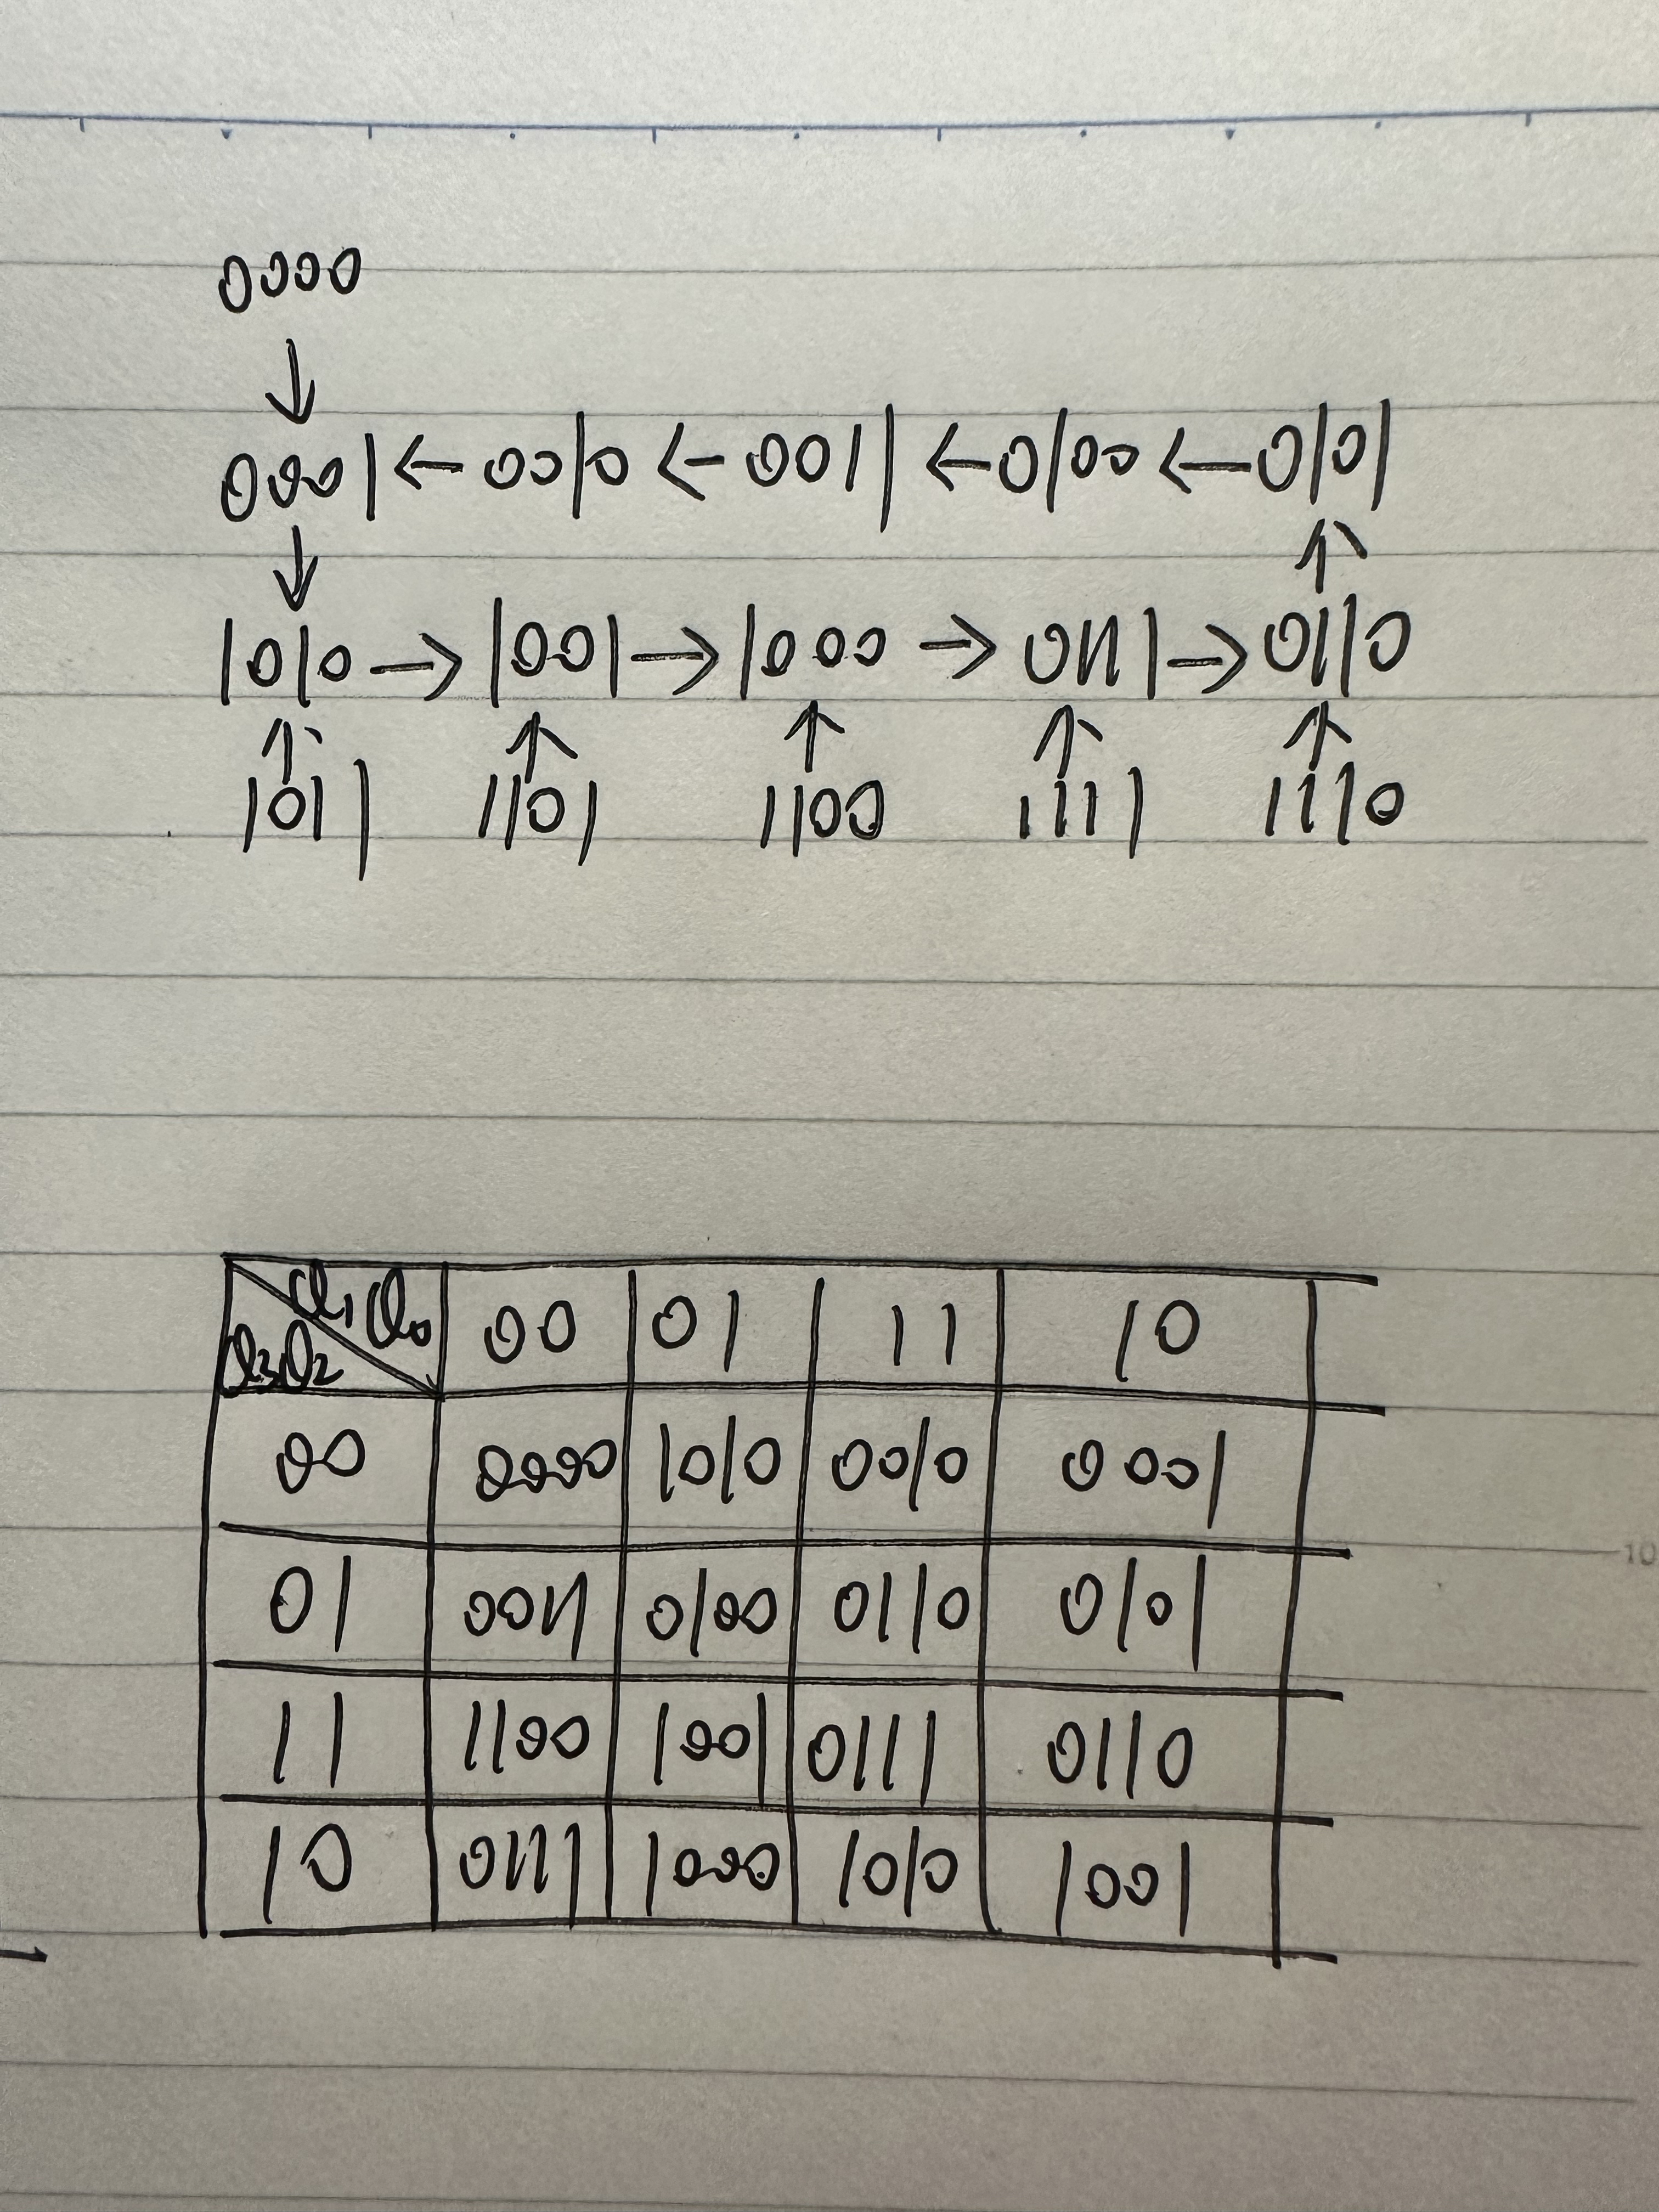 0000
↓
0001 ← 0010 ← 0011 ← 0100 ← 0101
↓ ↑
1010 → 1001 → 1000 → 0111 → 0110
↑ ↑ ↑ ↑ ↑
1011 1101 1100 1111 1110
Q1Q0 00 01 11 10
Q3Q2
00 0000 1010 0010 0001
01 0011 0100 0110 0101
11 1100 1001 0111 0110
10 0111 1000 1010 1001
10